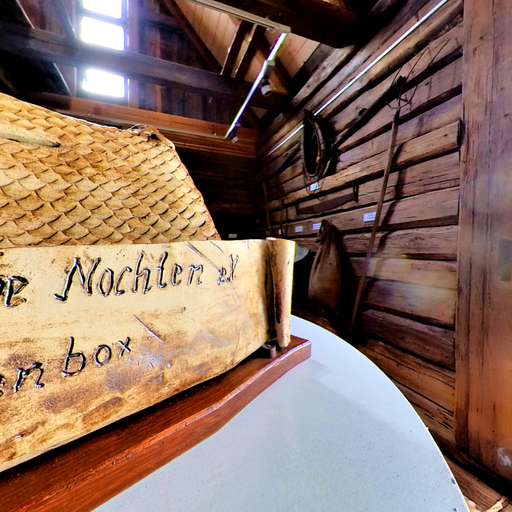 e Nochten e.V
en box